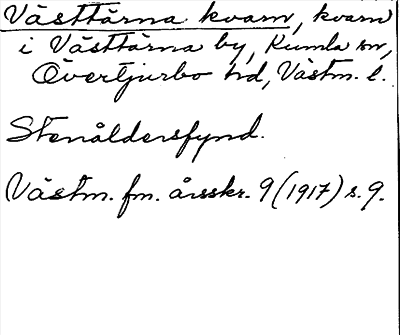 Västtärna kvarn, kvarn
i Västtärna by, Kumla sn,
Övertjurbo hd, Västm. l.
Stenåldersfynd.
Västm. fm. årsskr. 9 (1917) s. 9.